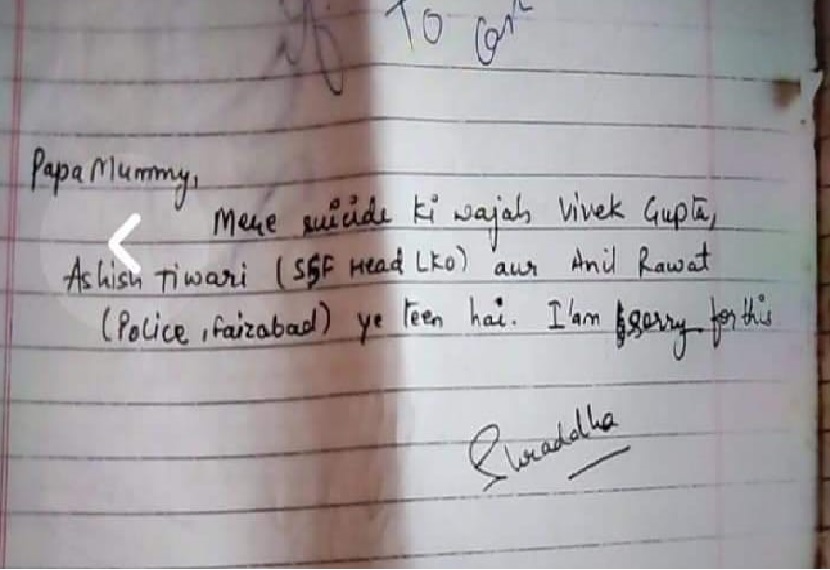 To
Papa Mummy,
Mere suicide ki wajah Vivek Gupta,
Ashish Tiwari (SSF Head LKO) aur Anil Rawat
(Police, faizabad) ye teen hai. I'am sorry for this
Shraddha